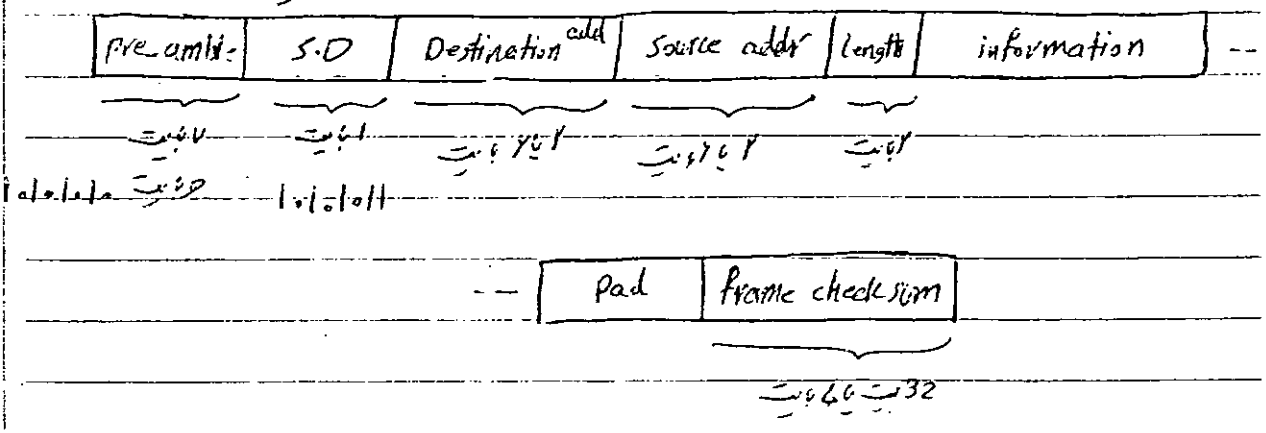 preamble S.D Destination add Source addr length information --
۷ بایت ۱ بایت ۲ یا ۶ بایت ۲ یا ۶ بایت ۲ بایت
۱۰۱۰۱۰۱۰ بایت ۱۰۱۰۱۰۱۱
-- Pad frame checksum
32 بیت یا 4 بایت